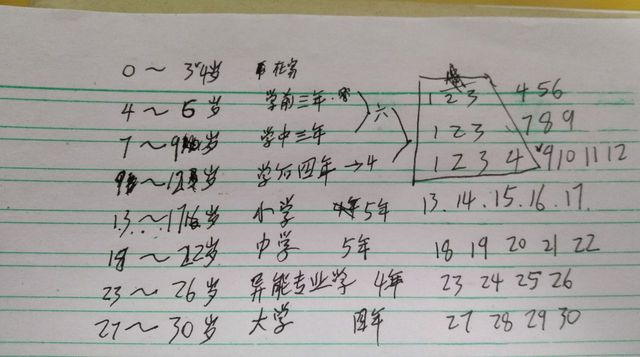 0～34岁 在家
4～6岁 学前三年 六 1 2 3 4 5 6
7～9岁 学中三年 1 2 3 7 8 9
9～12岁 学后四年→4 1 2 3 4 9 10 11 12
13～17岁 小学 5年 13.14.15.16.17.
18～22岁 中学 5年 18 19 20 21 22
23～26岁 异能专业学 4年 23 24 25 26
27～30岁 大学 四年 27 28 29 30